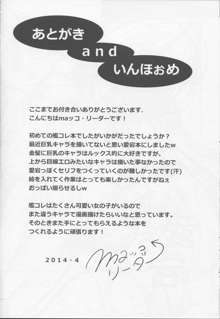 あとがき
and
いんほぉめ
ここまでお付き合いありがとうございます.
こんにちはmaッコ・リーダーです!
初めての艦コレ本でしたがいかがだったでしょうか?
最近巨乳キャラを描いてないと思い愛宕本にしましたw
金髪に巨乳のキャラはルックス的に大好きですが、
上から目線エロみたいなキャラは描いた事なかったので
愛宕っぽくセリフをつくっていくのが難しかったです(汗)
絵を入れてく作業はとっても楽しかったんですがねぇ
おっぱい揺らせるしw
艦コレはたくさん可愛い女の子がいるので
また違うキャラで漫画描けたらいいなと思っています。
そのときまた手にとってもらえるような本を
つくれるように頑張ります!
2014・4
maッコ
リーダー